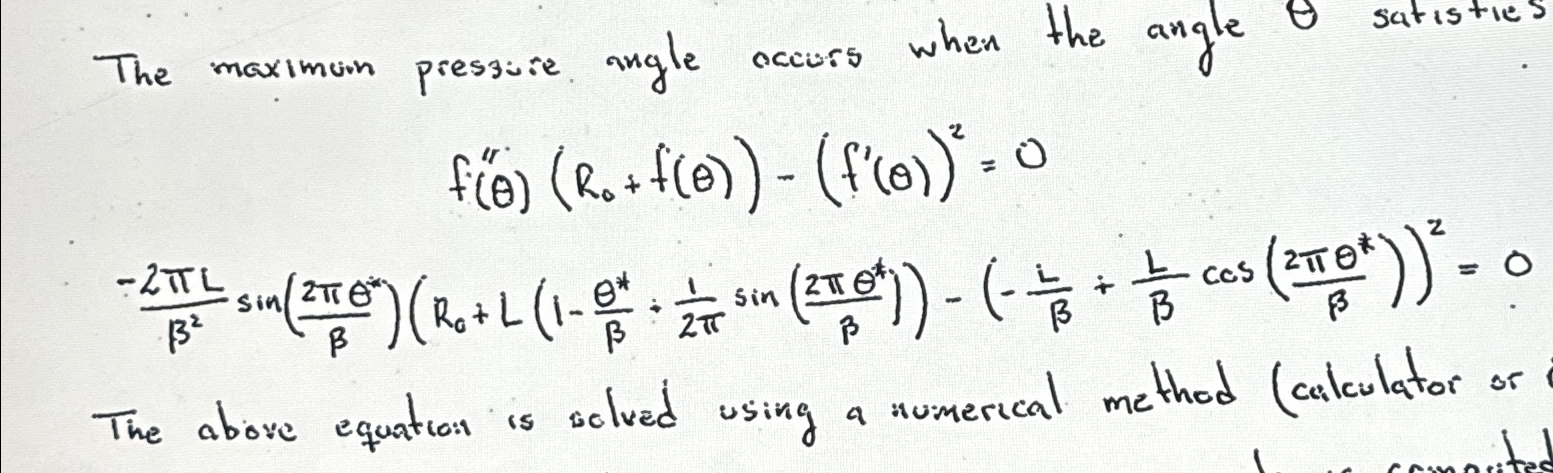 The maximum pressure angle occurs when the angle θ satisfies
f''(θ) (R₀ + f(θ)) - (f'(θ))² = 0
-2πL/β² sin(2πθ*/β) (R₀ + L(1 - θ*/β + 1/2π sin(2πθ*/β)) - (-L/β + L/β cos(2πθ*/β))² = 0
The above equation is solved using a numerical method (calculator or